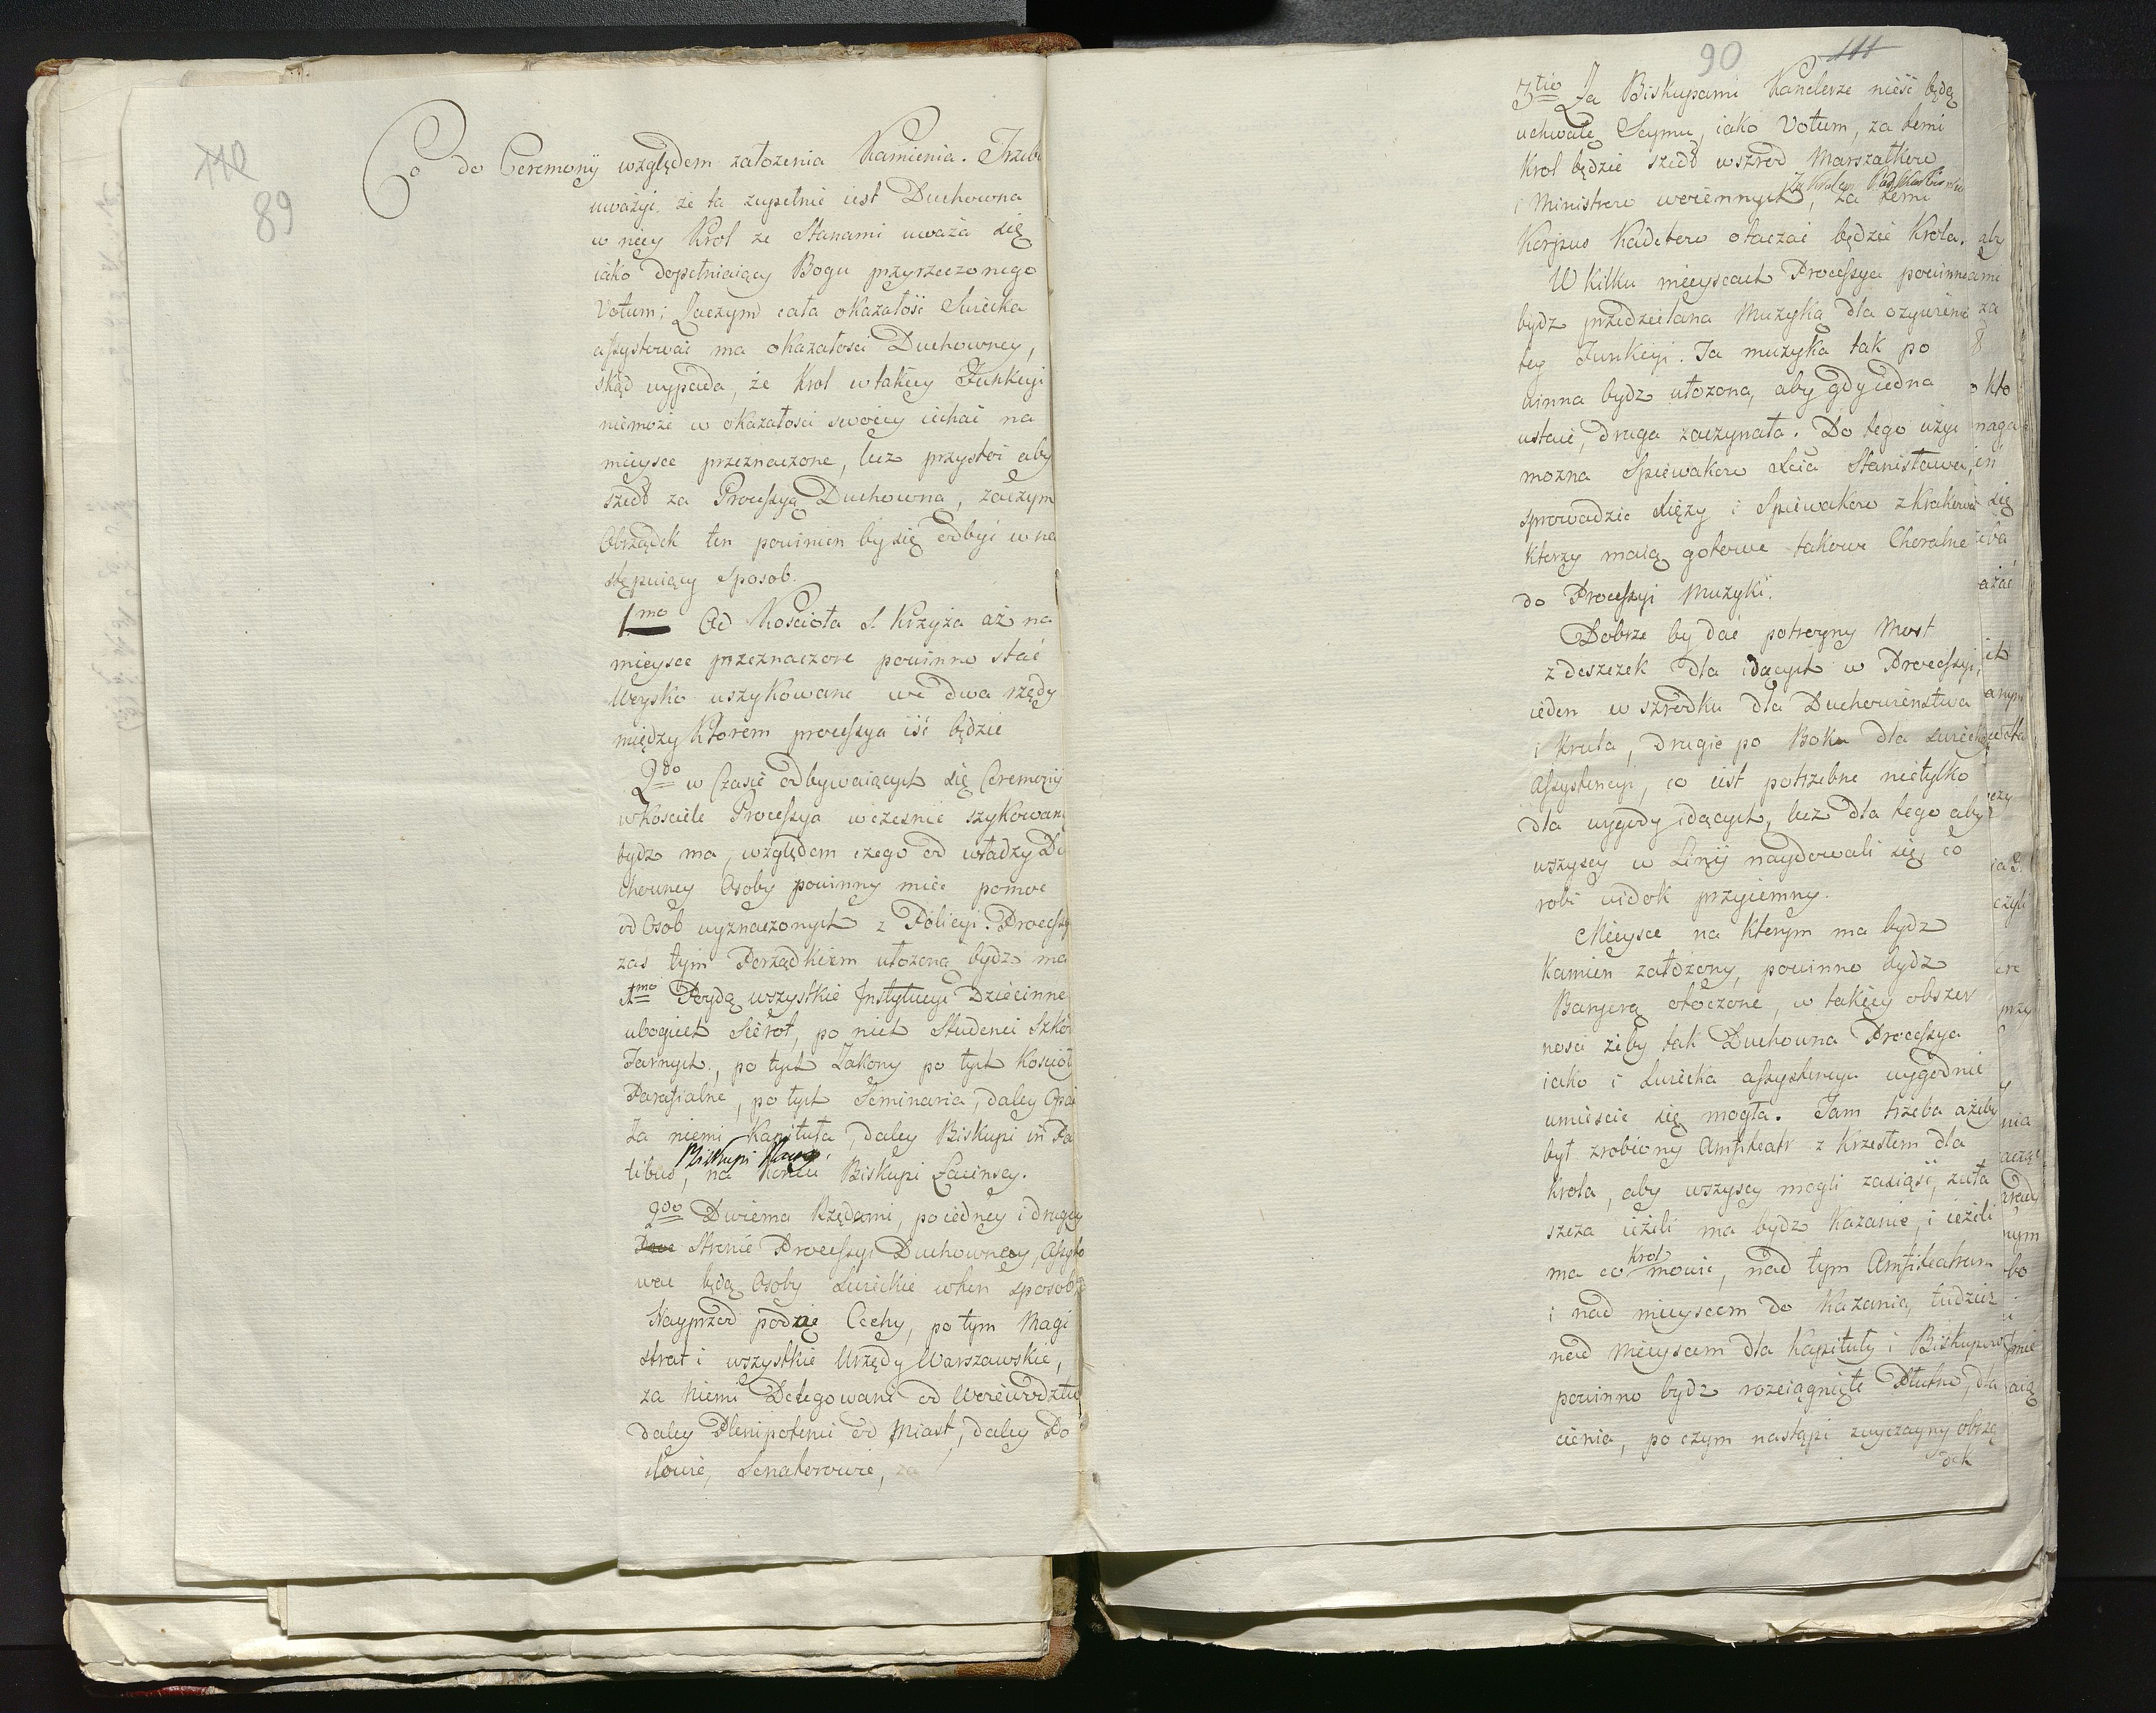 110
89
Co do Ceremonij względem założenia Kamienia. Trzeba
uważyć, że ta zupełnie iest Duchowna
w nęcy Krol ze Stanami uważa się
iako dopełniaiący Bogu przyrzeczonego
Votum; Zaczym cała okazałość Swiecka
assystować ma okazałosci Duchowney,
skąd wypada, że Krol w takiey Funkcyi
niemoże w okazałosci swoiey iechać na
mieysce przeznaczone, lecz przystoi aby
szedł za Processyą Duchowną, zaczym
Obrządek ten powinien by się odbyć w na
stępuiący sposob.
1mo Od Kościoła S. Krzyża aż na
mieysce przeznaczone powinno stać
Woysko uszykowane we dwa rzędy
między ktorem processya iść będzie
2do w Czasie odbywaiących się Ceremonij
w kosciele Processya wczesnie szykowana
bydz ma, względem czego od władzy Du
chowney Osoby powinny miec pomoc
od Osob wyznaczonych z Policyi. Processya
zas tym Porządkiem ułozona bydz ma
1mo Poydą wszystkie Jnstytucye Dziecinne
ubogich Sierot, po nich Studenci Szkoł
Farnych, po tych Zakony po tych Kościoły
Parafialne, po tych Seminaria, daley Opaci
Za niemi Kapituła, daley Biskupi in Par
Biskupi
tibus, na końcu Biskupi Łacinscy.
2do Dwiema Rzędami, po iedney i drugiey
Proc Stronie Processyi Duchowney, Assysto
wac będą Osoby Swieckie w ten sposob
Nayprzod podzie Cechy, po tym Magi
strat i wszystkie Urzędy Warszawskie,
za niemi Delegowani od Woiewodztw
daley Plenipotenci od Miast, daley Po
słowie, Senatorowie, za
90
111
3tio Za Biskupami Kanclerze nieść będą
uchwałę Seymu, iako Votum, za temi
Krol będzie szedł wszrod Marszałkow
za Krolem Podskarbiowie
i Ministrow woiennych, za temi
Korpus Kadetow otaczać będzie Krola.
W kilku mieyscach Processya powinna
bydz przedzielana Muzyką dla ozywienia
tey Funkcyi. Ta muzyka tak po
winna bydz ułozona, aby gdy iedna
ustaie, druga zaczynała. Do tego użyć
mozna Spiewakow Xcia Stanisława,
sprowadzic Xięzy i Spiewakow z Krakowa
ktorzy maią gotowe takowe Choralne
do Processyi Muzyki.
Dobrze by dać potroyny Most
z deszczek dla idących w Processyi,
ieden w szrodku dla Duchowienstwa
i Krula, drugie po Boku dla Swieckiey
Assystencyi, co iest potrzebne nietylko
dla wygody idących, lecz dla tego aby
wszyscy w Linij naydowali się, co
robi widok przyiemny.
Mieysce na ktorym ma bydz
Kamien załozony, powinno bydz
Baryerą otoczone, w takiey obszer
nosci żeby tak Duchowna Processya
iako i Swiecka assystencya wygodnie
umiescic się mogła. Tam trzeba ażeby
był zrobiony Amfiteatr z Krzesłem dla
Krola, aby wszyscy mogli zasiąśc, zwła
szcza ieżeli ma bydz Kazanie, i ieżeli
Krol
ma co mowic, nad tym Amfiteatrem
i nad mieyscem do Kazania, tudzież
nad Mieyscem dla Kapituły i Biskupow
powinno bydz rozciągnięte Płutno, dla
cienia, po czym nastąpi zwyczayny obrzą
dek